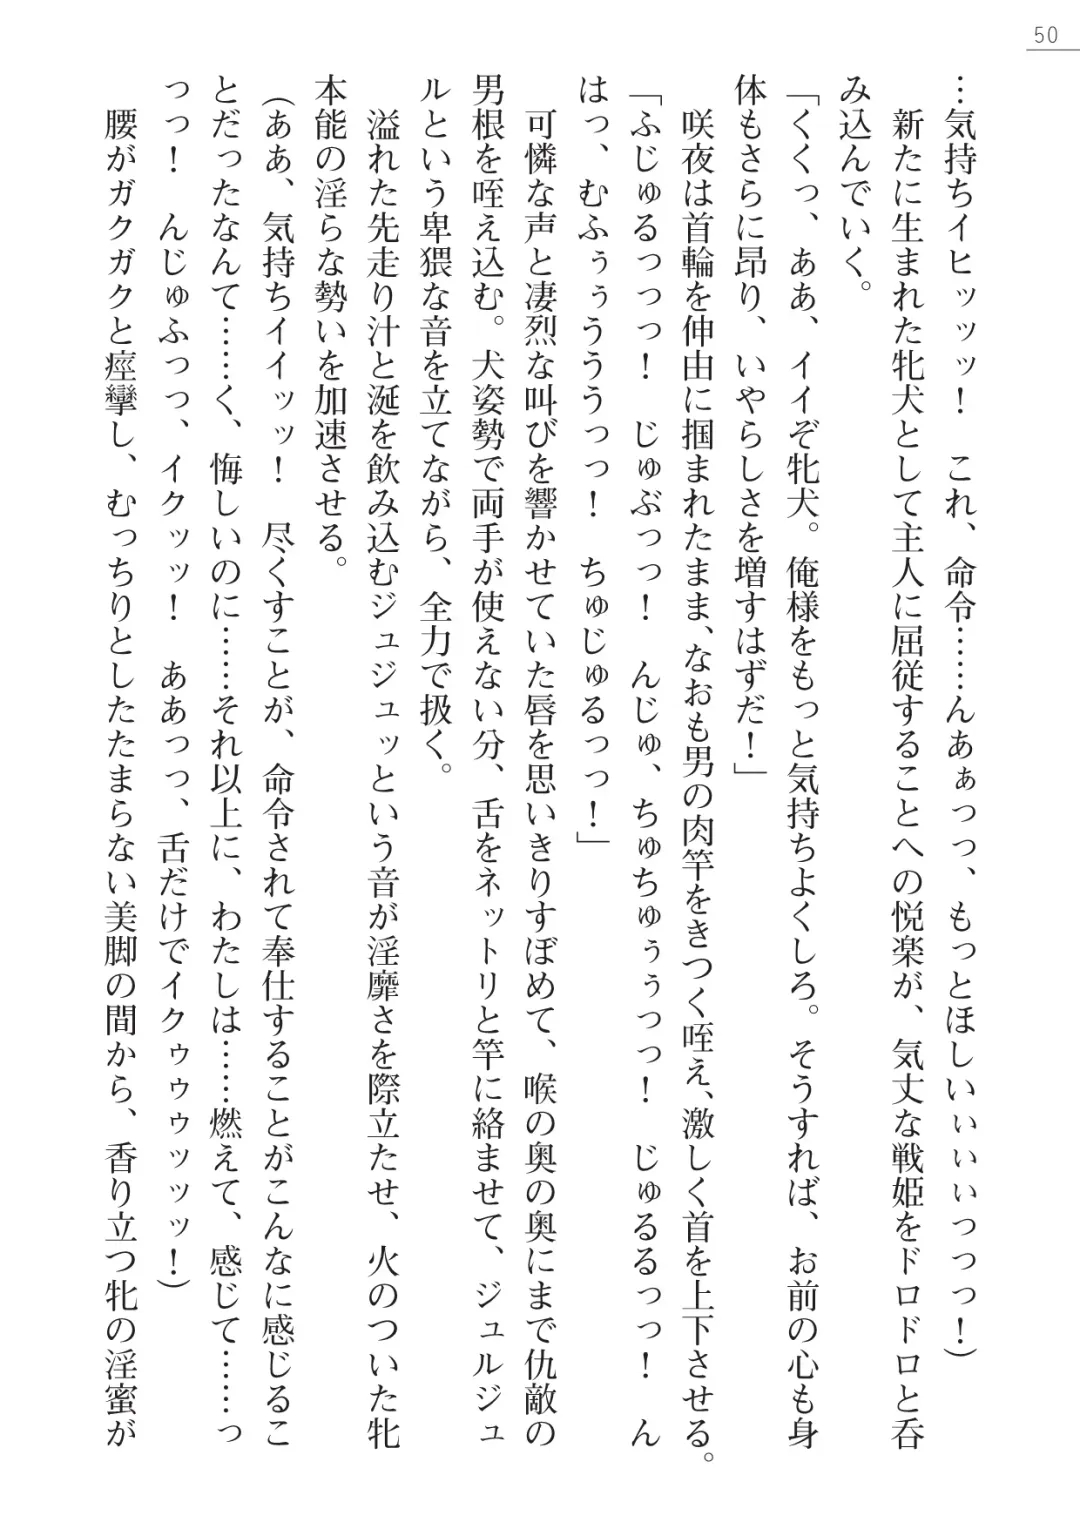 50
…気持ちイヒッッッ！　これ、命令……んあぁっっ、もっとほしいぃぃぃっっっ！）
　新たに生まれた牝犬として主人に屈従することへの悦楽が、気丈な戦姫をドロドロと呑
み込んでいく。
「くくっ、ああ、イイぞ牝犬。俺様をもっと気持ちよくしろ。そうすれば、お前の心も身
体もさらに昂り、いやらしさを増すはずだ！」
　咲夜は首輪を伸由に掴まれたまま、なおも男の肉竿をきつく咥え、激しく首を上下させる。
「ふじゅるっっっ！　じゅぶっっ！　んじゅ、ちゅちゅぅぅっっ！　じゅるるっっ！　ん
はっ、むふぅぅうううっっ！　ちゅじゅるっっ！」
　可憐な声と凄烈な叫びを響かせていた唇を思いきりすぼめて、喉の奥の奥にまで仇敵の
男根を咥え込む。犬姿勢で両手が使えない分、舌をネットリと竿に絡ませて、ジュルジュ
ルという卑猥な音を立てながら、全力で扱く。
　溢れた先走り汁と涎を飲み込むジュジュッという音が淫靡さを際立たせ、火のついた牝
本能の淫らな勢いを加速させる。
（ああ、気持ちイイッッ！　尽くすことが、命令されて奉仕することがこんなに感じるこ
とだったなんて……く、悔しいのに……それ以上に、わたしは……燃えて、感じて……っ
っっ！　んじゅふっっ、イクッッ！　ああっっ、舌だけでイクゥゥゥッッッ！）
　腰がガクガクと痙攣し、むっちりとしたたまらない美脚の間から、香り立つ牝の淫蜜が